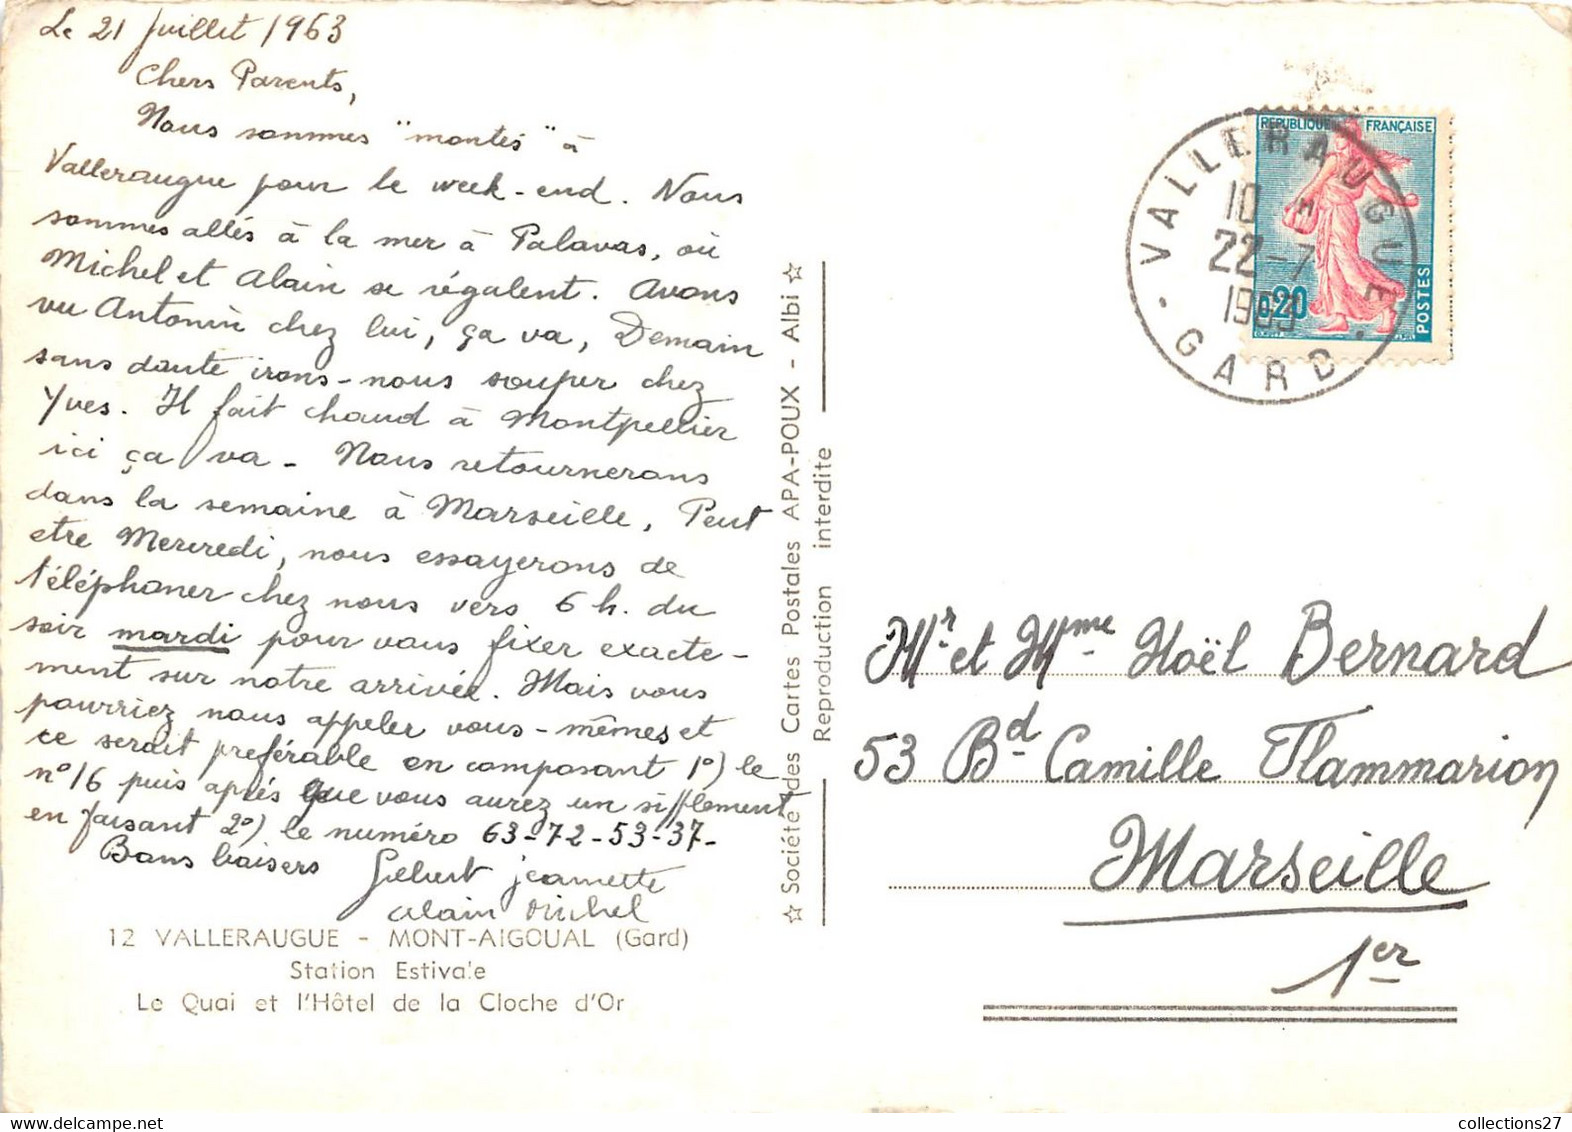 Le 21 Juillet 1963
Chers Parents,
Nous sommes "montés" à
Valleraugue pour le week-end. Nous
sommes allés à la mer à Palavas, où
Michel et Alain se régalent. Avons
vu Antonin chez lui, ça va, Demain
sans doute irons-nous souper chez
Yves. Il fait chaud à Montpellier
ici ça va - Nous retournerons
dans la semaine à Marseille, Peut
etre Mercredi, nous essayerons de
téléphoner chez nous vers 6 h. du
soir mardi pour vous fixer exacte-
ment sur notre arrivée. Mais vous
pourriez nous appeler vous-mêmes et
ce serait preférable en composant 1°) le
n°16 puis après que vous aurez un sifflement
en faisant 2°) le numéro 63-72-53-37-
Bons baisers Gilbert Jeannette
Alain Michel
12 VALLERAUGUE - MONT-AIGOUAL (Gard)
Station Estivale
Le Quai et l'Hôtel de la Cloche d'Or
☆ Société des Cartes Postales APA-POUX - Albi ☆
Reproduction interdite
REPUBLIQUE FRANÇAISE
0,20
POSTES
VALLERAUGUE
10 H
22-7
1963
GARD
Mr et Mme Noël Bernard
53 Bd Camille Flammarion
Marseille
1er
collections27